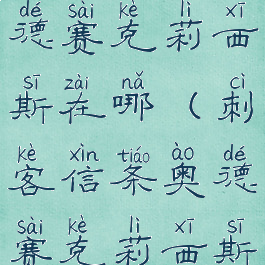 dé sài kè lì xī
德赛克莉西
sī zài nǎ cì
斯在哪（刺
kè xìn tiáo ào dé
客信条奥德
sài kè lì xī sī
赛克莉西斯